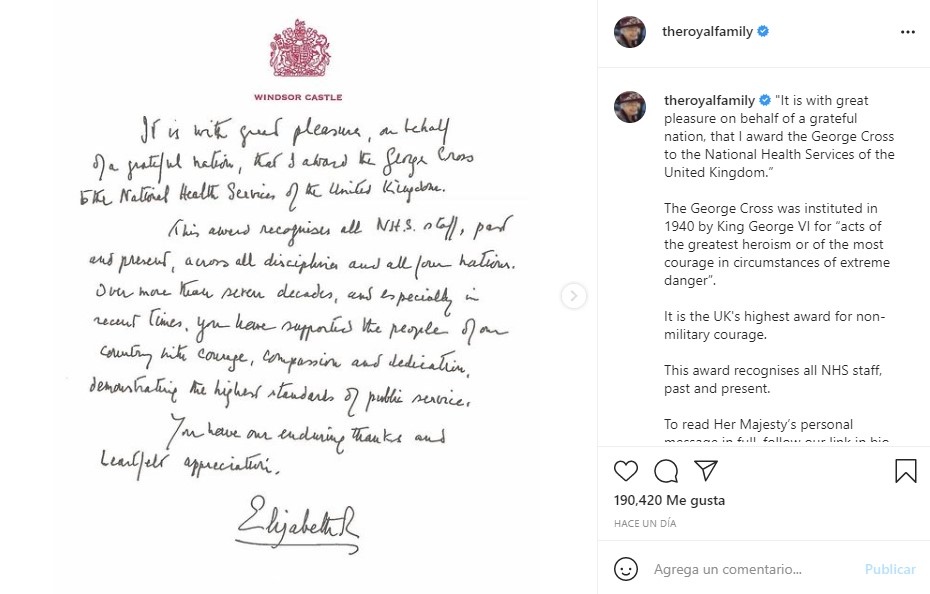 WINDSOR CASTLE
It is with great pleasure, on behalf
of a grateful nation, that I award the George Cross
to the National Health Services of the United Kingdom.
This award recognises all N.H.S. staff, past
and present, across all disciplines and all four nations.
Over more than seven decades, and especially in
recent times, you have supported the people of our
country with courage, compassion and dedication,
demonstrating the highest standards of public service.
You have our enduring thanks and
heartfelt appreciation.
Elizabeth R
theroyalfamily
theroyalfamily "It is with great
pleasure on behalf of a grateful
nation, that I award the George Cross
to the National Health Services of the
United Kingdom."
The George Cross was instituted in
1940 by King George VI for “acts of
the greatest heroism or of the most
courage in circumstances of extreme
danger”.
It is the UK’s highest award for non-
military courage.
This award recognises all NHS staff,
past and present.
To read Her Majesty’s personal
message in full, follow our link in bio
190,420 Me gusta
HACE UN DÍA
Agrega un comentario...
Publicar